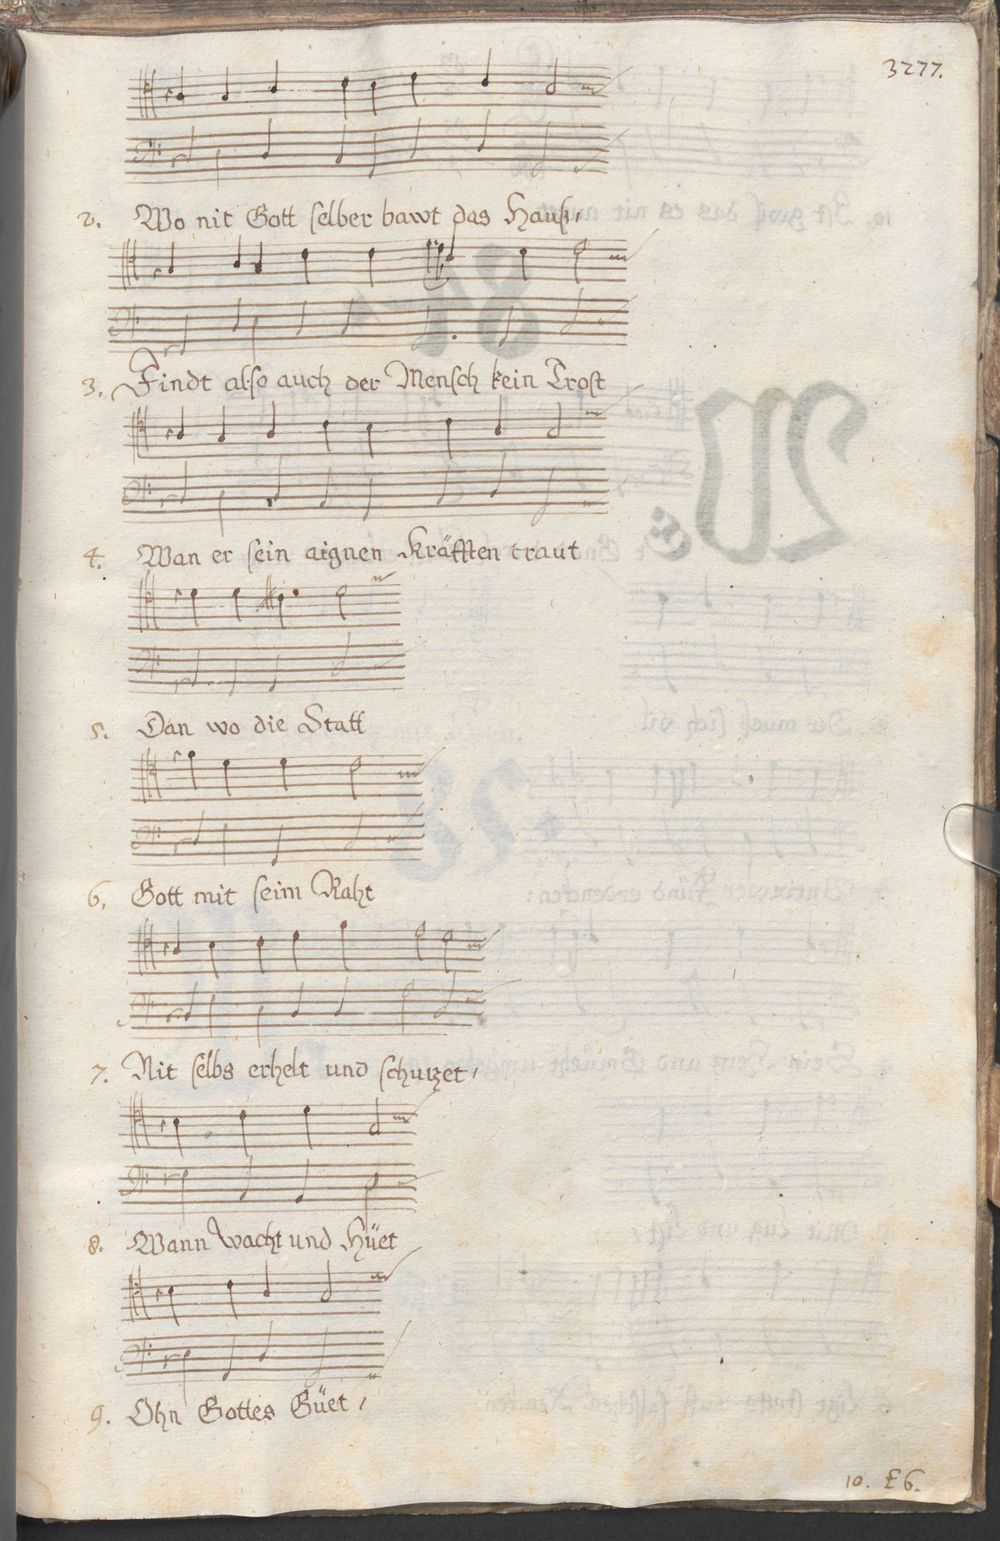 3277.
2. Wo nit Gott selber bawt das Hauß,
3. Findt also auch der Mensch kein Trost
4. Wan er sein aignen Kräfften traut
5. Dan wo die Statt
6. Gott mit seim Raht
7. Nit selbs erhelt und schuzet,
8. Wann Wacht und Hüet
9. Ohn Gottes Güet,
10. Es.